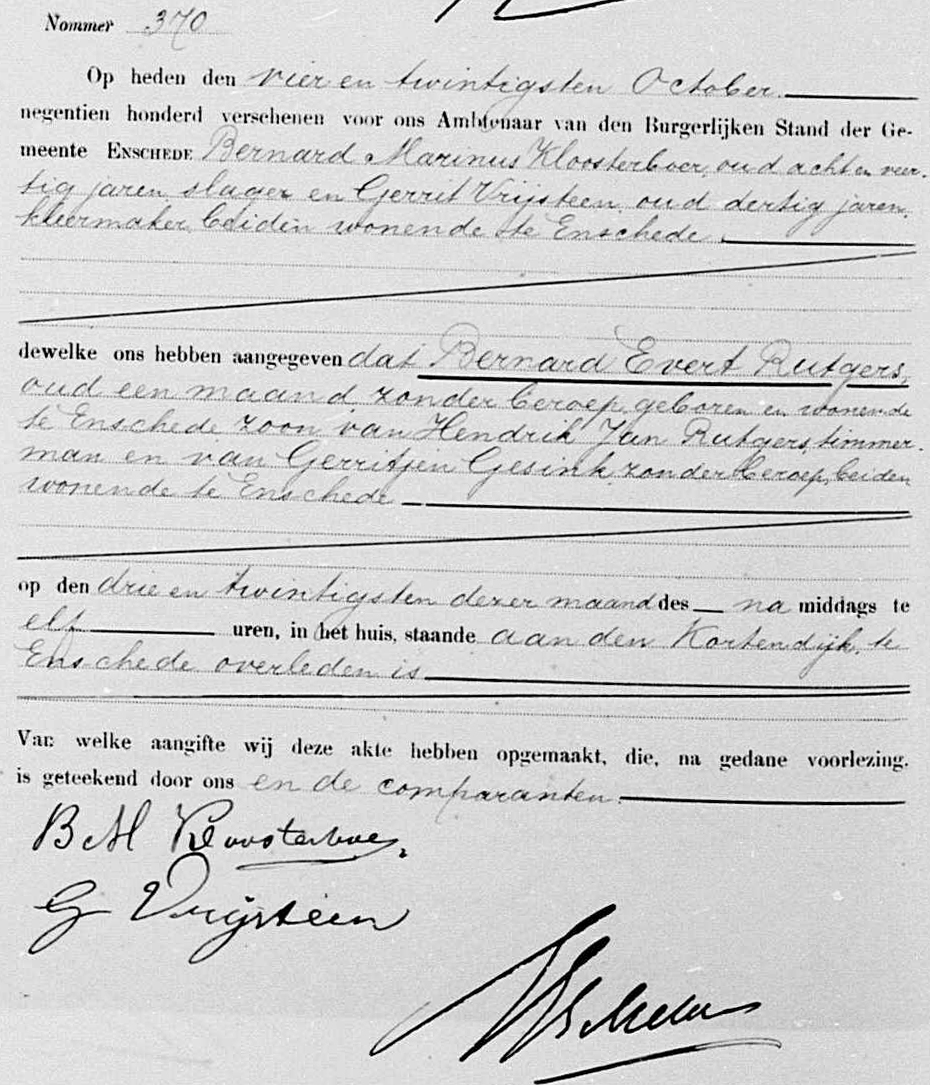 Nommer 370
Op heden den vier en twintigsten October.
negentien honderd verschenen voor ons Ambtenaar van den Burgerlijken Stand der Ge-
meente ENSCHEDE Bernard Marinus Kloosterboer, oud acht en veer-
tig jaren, slager en Gerrit Vrijsteen, oud dertig jaren,
kleermaker, beiden wonende te Enschede.
dewelke ons hebben aangegeven dat Bernard Evert Rutgers,
oud een maand, zonder beroep, geboren en wonende
te Enschede zoon van Hendrik Jan Rutgers, timmer-
man en van Gerritjen Gesink, zonder beroep, beiden
wonende te Enschede
op den drie en twintigsten dezer maand des na middags te
elf uren, in het huis, staande aan den Kortendijk, te
Enschede overleden is
Van welke aangifte wij deze akte hebben opgemaakt, die, na gedane voorlezing,
is geteekend door ons en de comparanten.
B M Kloosterboer.
G Vrijsteen